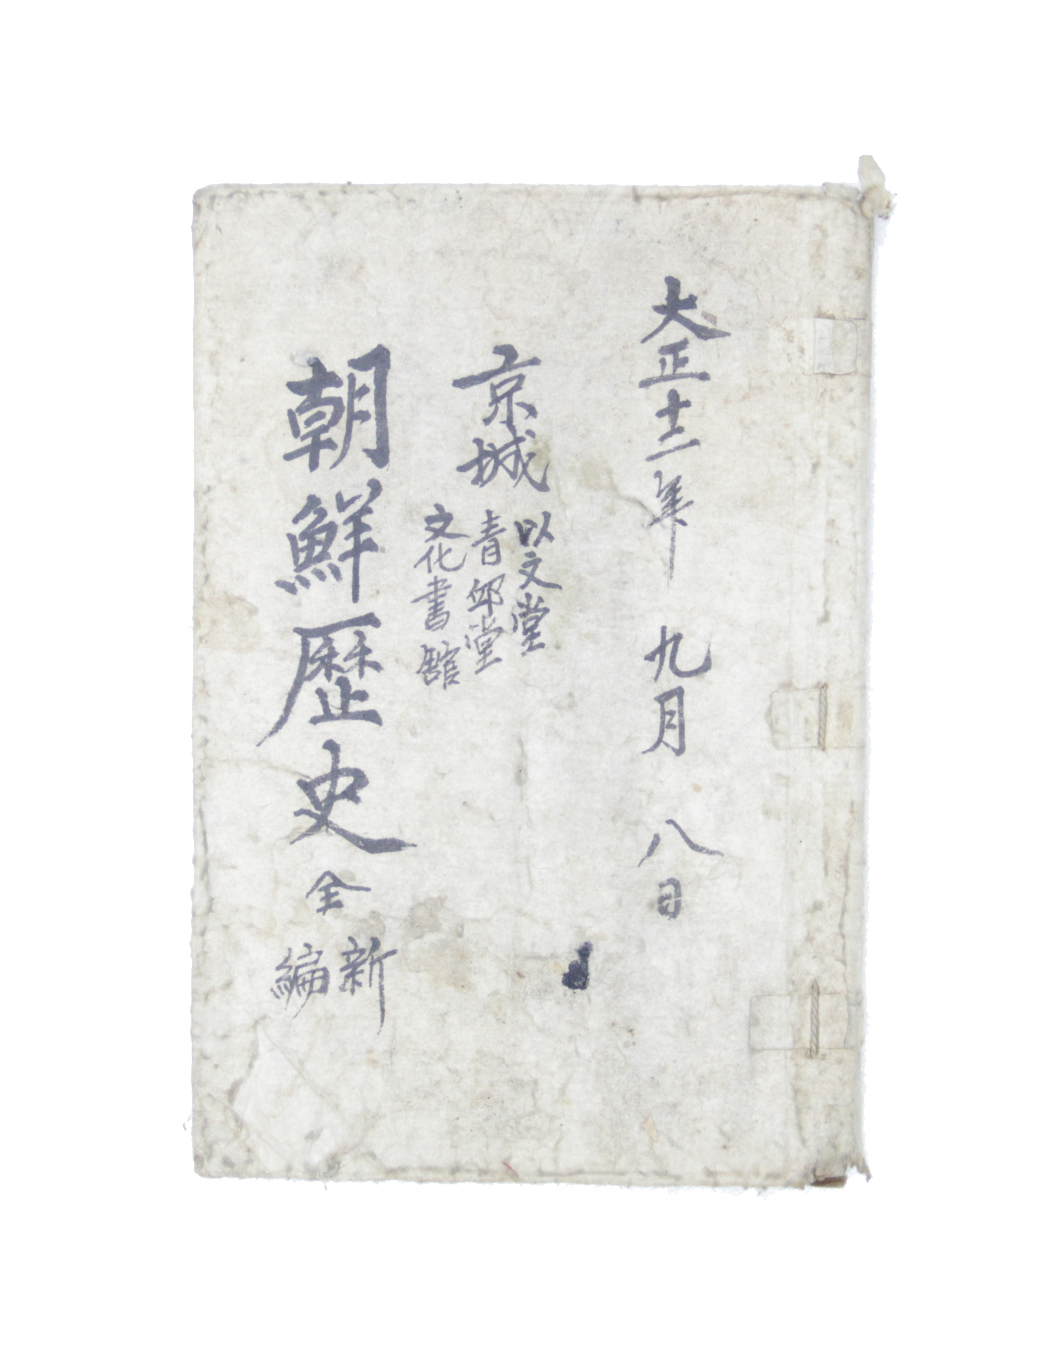 大正十二年 九月 八日
京城
以文堂
青邱堂
文化書館
朝鮮歴史 全
新編